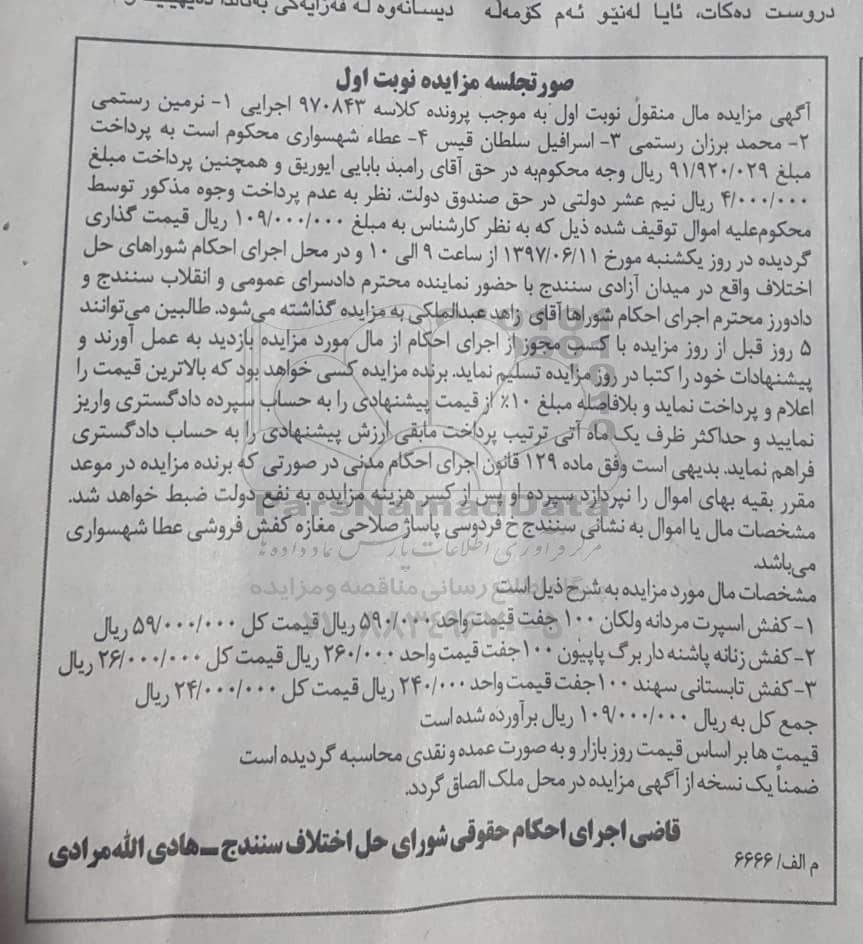 دروست دەکات، ئایا لەنێو ئەم کۆمەڵە دیسانەوە لە
صورتجلسه مزایده نوبت اول
آگهی مزایده مال منقول نوبت اول به موجب پرونده کلاسه ۹۷۰۸۴۳ اجرایی ۱- نرمین رستمی
۲- محمد برزان رستمی ۳- اسرافیل سلطان قیس ۴- عطاء شهسواری محکوم است به پرداخت
مبلغ ۹۱/۹۲۰/۰۲۹ ریال وجه محکوم‌به در حق آقای رامبذ بابایی ایوریق و همچنین پرداخت مبلغ
۴/۰۰۰/۰۰۰ ریال نیم عشر دولتی در حق صندوق دولت. نظر به عدم پرداخت وجوه مذکور توسط
محکوم‌علیه اموال توقیف شده ذیل که به نظر کارشناس به مبلغ ۱۰۹/۰۰۰/۰۰۰ ریال قیمت گذاری
گردیده در روز یکشنبه مورخ ۱۳۹۷/۰۶/۱۱ از ساعت ۹ الی ۱۰ و در محل اجرای احکام شوراهای حل
اختلاف واقع در میدان آزادی سنندج با حضور نماینده محترم دادسرای عمومی و انقلاب سنندج و
دادورز محترم اجرای احکام شوراها آقای زاهد عبدالملکی به مزایده گذاشته می‌شود. طالبین می‌توانند
۵ روز قبل از روز مزایده با کسب مجوز از اجرای احکام از مال مورد مزایده بازدید به عمل آورند و
پیشنهادات خود را کتبا در روز مزایده تسلیم نماید. برنده مزایده کسی خواهد بود که بالاترین قیمت را
اعلام و پرداخت نماید و بلافاصله مبلغ ۱۰٪ از قیمت پیشنهادی را به حساب سپرده دادگستری واریز
نمایید و حداکثر ظرف یک ماه آتی ترتیب پرداخت مابقی ارزش پیشنهادی را به حساب دادگستری
فراهم نماید. بدیهی است وفق ماده ۱۲۹ قانون اجرای احکام مدنی در صورتی که برنده مزایده در موعد
مقرر بقیه بهای اموال را نپردازد سپرده او پس از کسر هزینه مزایده به نفع دولت ضبط خواهد شد.
ParsNamadData
مشخصات مال یا اموال به نشانی سنندج خ فردوسی پاساژ صلاحی مغازه کفش فروشی عطا شهسواری
مرکز فرآوری اطلاعات پارس نماد داده ها
می‌باشد.
پایگاه اطلاع رسانی مناقصه و مزایده
مشخصات مال مورد مزایده به شرح ذیل است
۱- کفش اسپرت مردانه ولکان ۱۰۰ جفت قیمت واحد ۵۹۰/۰۰۰ ریال قیمت کل ۵۹/۰۰۰/۰۰۰ ریال
۲- کفش زنانه پاشنه دار برگ پاپیون ۱۰۰ جفت قیمت واحد ۲۶۰/۰۰۰ ریال قیمت کل ۲۶/۰۰۰/۰۰۰ ریال
۳- کفش تابستانی سهند ۱۰۰ جفت قیمت واحد ۲۴۰/۰۰۰ ریال قیمت کل ۲۴/۰۰۰/۰۰۰ ریال
جمع کل به ریال ۱۰۹/۰۰۰/۰۰۰ ریال برآورده شده است
قیمت ها بر اساس قیمت روز بازار و به صورت عمده و نقدی محاسبه گردیده است
ضمناً یک نسخه از آگهی مزایده در محل ملک الصاق گردد.
قاضی اجرای احکام حقوقی شورای حل اختلاف سنندج ـ هادی الله مرادی
م الف/ ۶۶۶۶